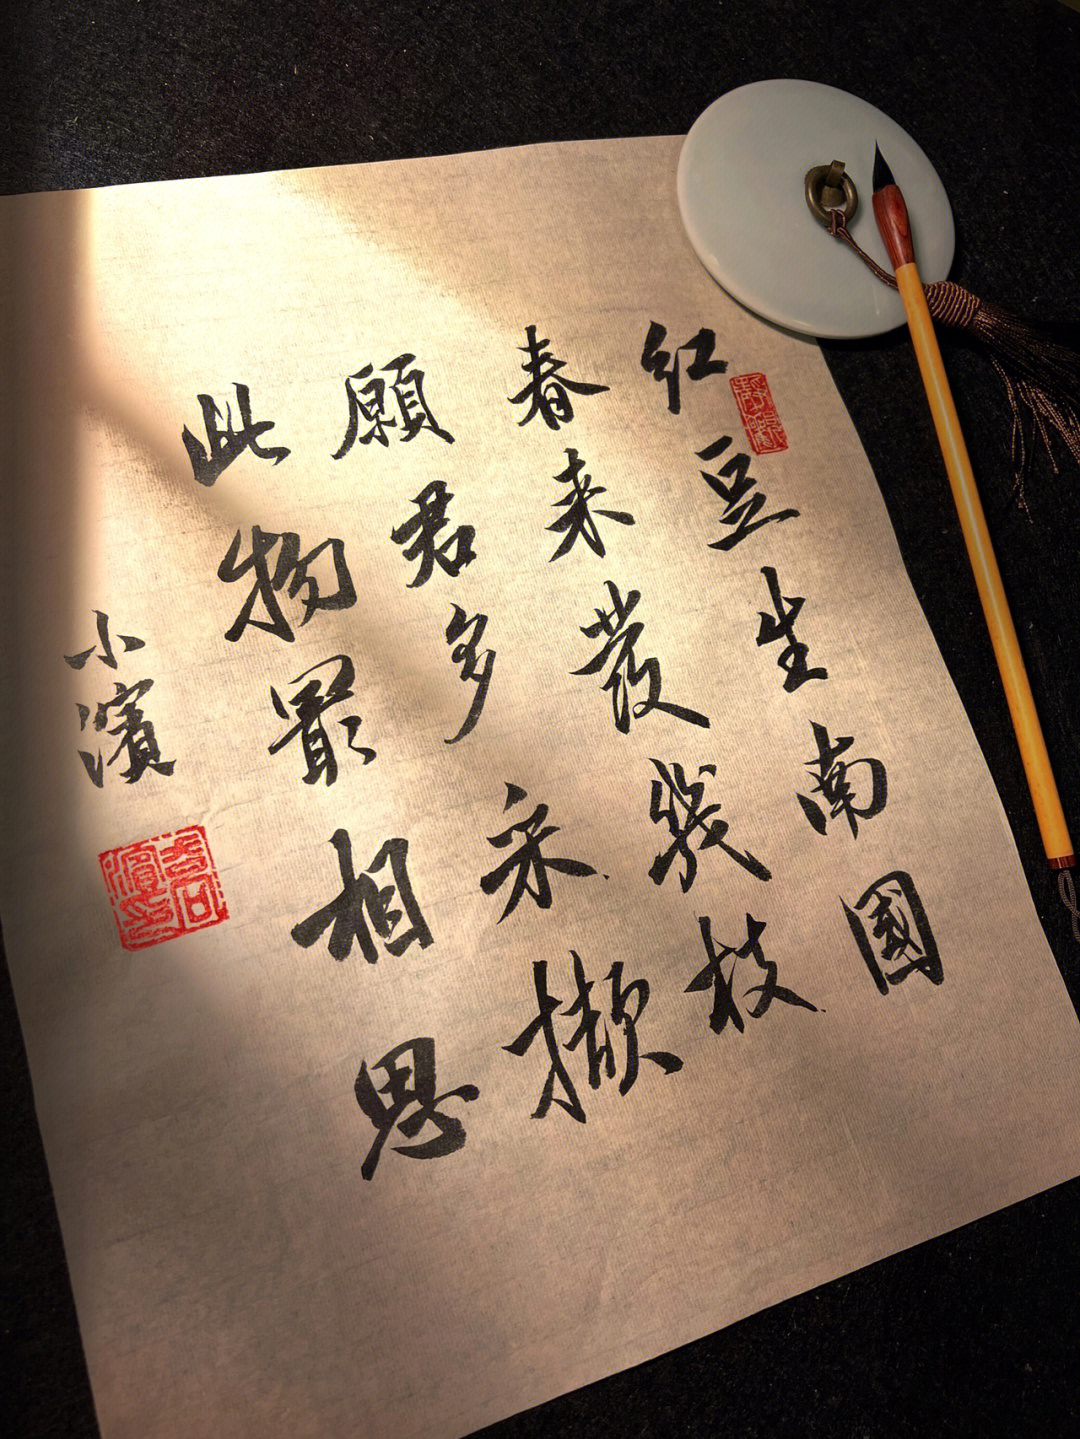 红豆生南國
春来發幾枝
願君多采擷
此物最相思
小濱